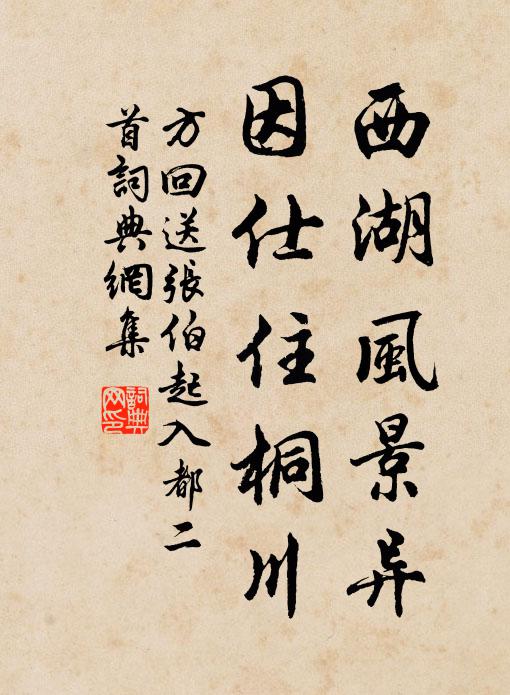 西湖風景异
因仕住桐川
方回送張伯起入都二
首詞典網集
詞典网印